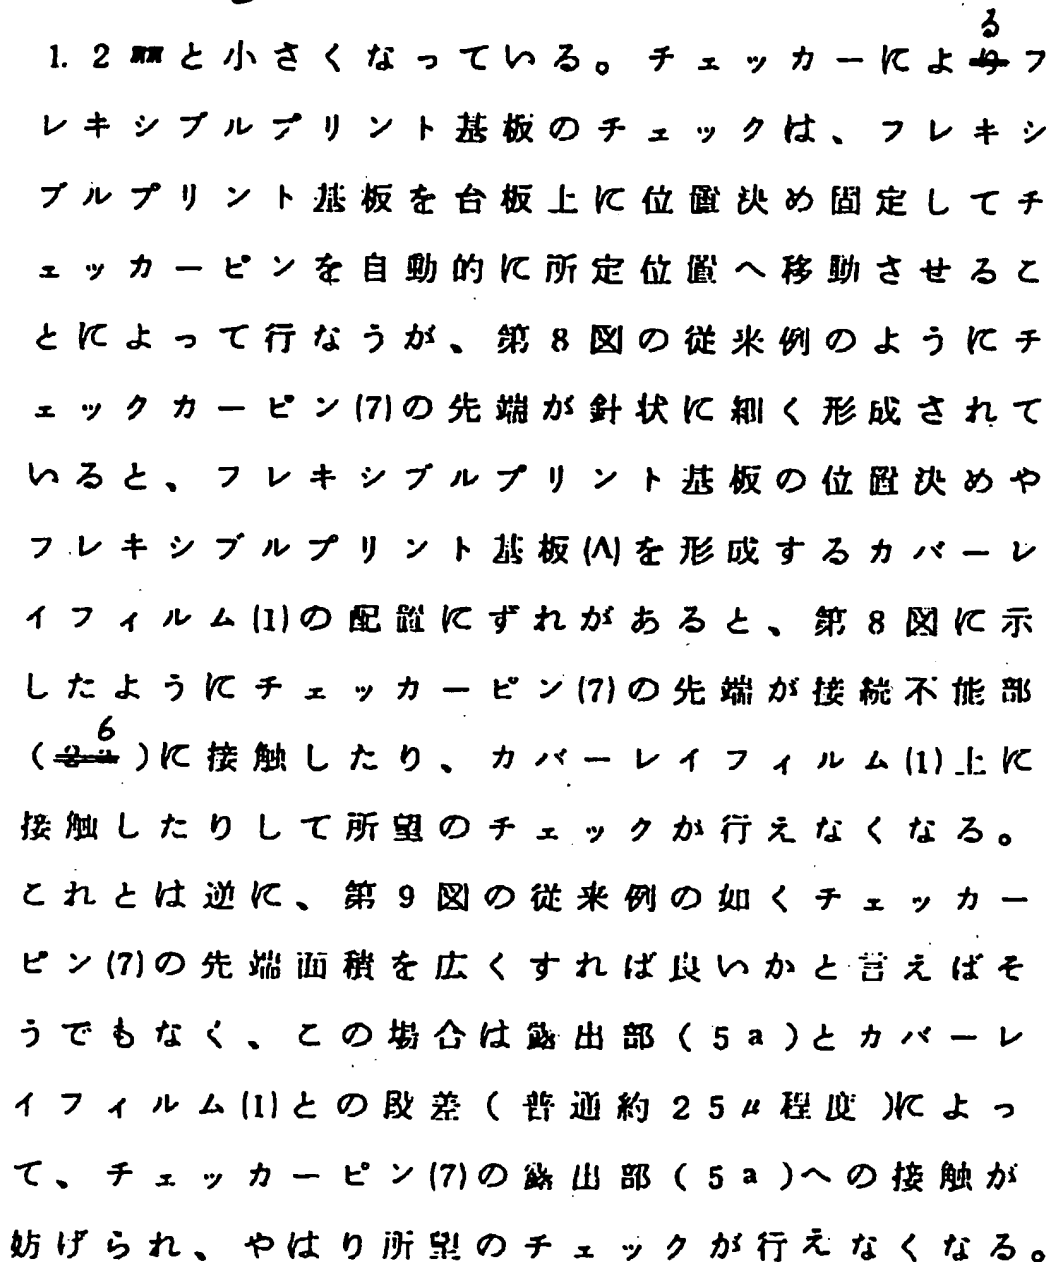 1.2㎜と小さくなっている。チェッカーによるフ
レキシブルプリント基板のチェックは、フレキシ
ブルプリント基板を台板上に位置決め固定してチ
ェッカーピンを自動的に所定位置へ移動させるこ
とによって行なうが、第8図の従来例のようにチ
ェックカーピン(7)の先端が針状に細く形成されて
いると、フレキシブルプリント基板の位置決めや
フレキシブルプリント基板(A)を形成するカバーレ
イフィルム(1)の配置にずれがあると、第8図に示
したようにチェッカーピン(7)の先端が接続不能部
(6)に接触したり、カバーレイフィルム(1)上に
接触したりして所望のチェックが行えなくなる。
これとは逆に、第9図の従来例の如くチェッカー
ピン(7)の先端面積を広くすれば良いかと言えばそ
うでもなく、この場合は露出部(5a)とカバーレ
イフィルム(1)との段差(普通約25μ程度)によっ
て、チェッカーピン(7)の露出部(5a)への接触が
妨げられ、やはり所望のチェックが行えなくなる。